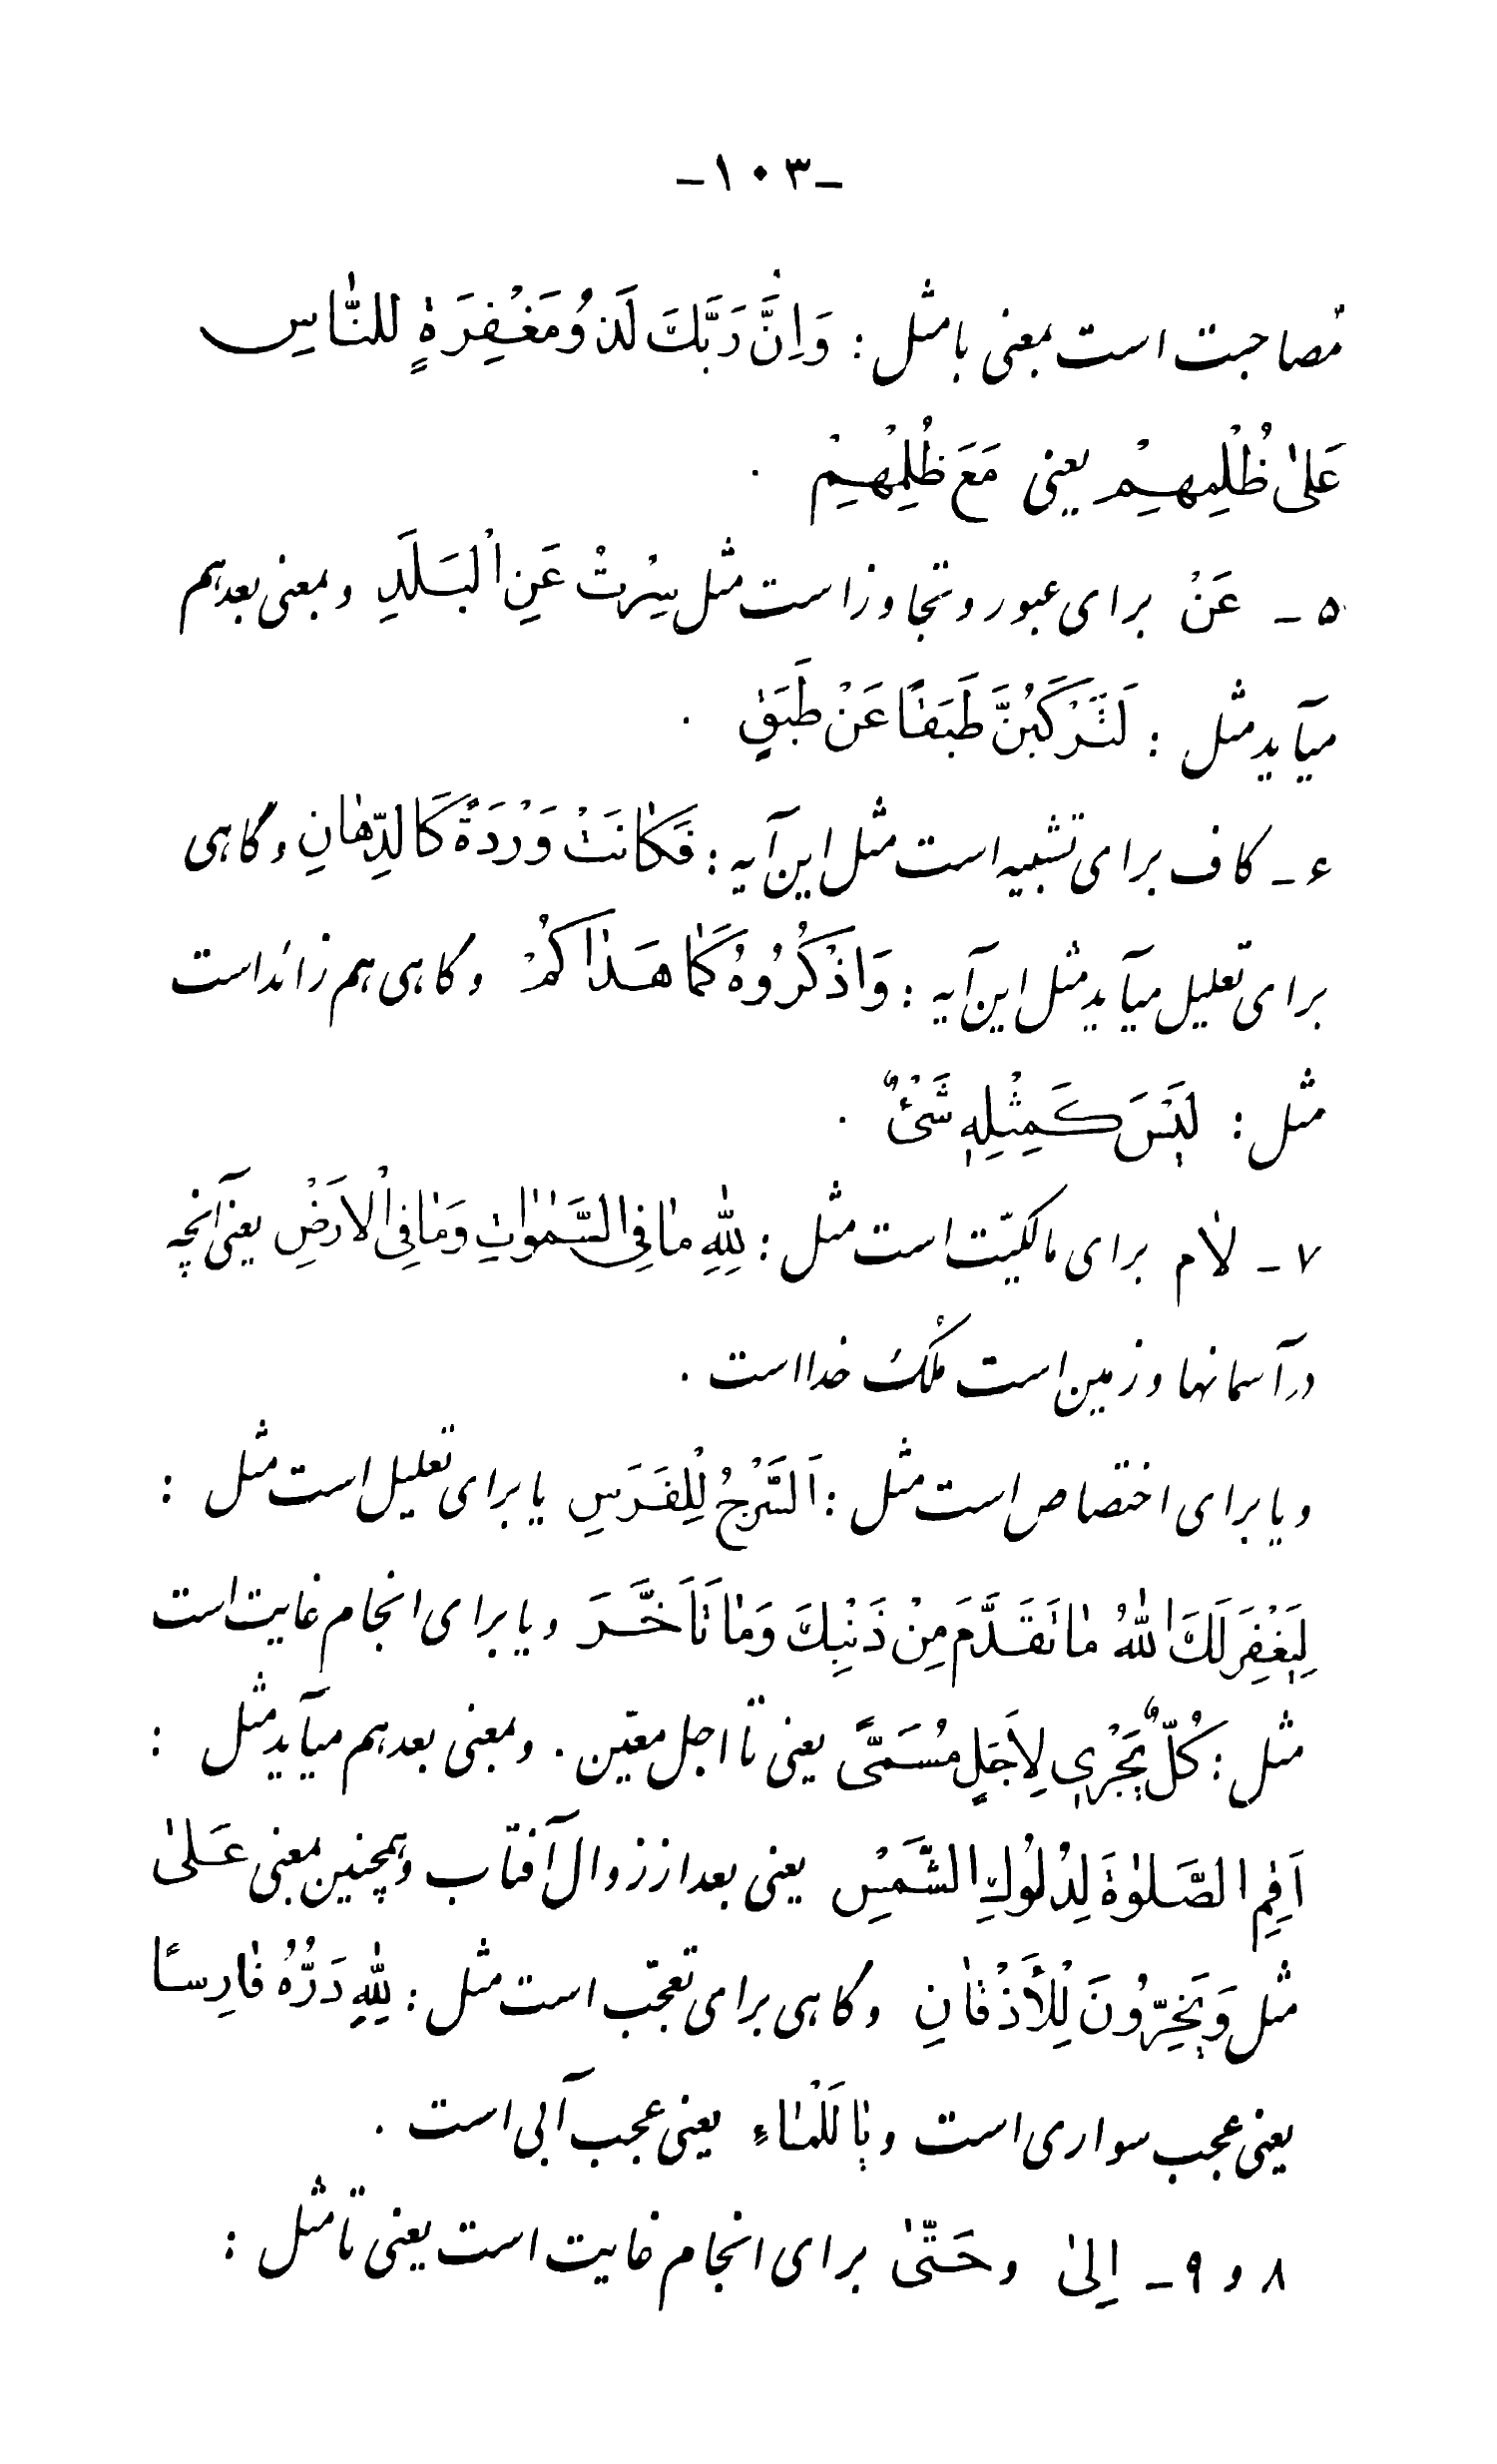 -۱۰۳-
مُصاحبت است بمعنی با مثل : وَاِنَّ رَبَّكَ لَذُو مَغْفِرَةٍ لِلنَّاسِ
عَلىٰ ظُلْمِهِمْ یعنی مَعَ ظُلْمِهِمْ .
۵ - عَنْ برای عبور و تجاوز است مثل سِرْتُ عَنِ الْبَلَدِ و بمعنی بعد هم
میآید مثل : لَتَرْكَبُنَّ طَبَقًا عَنْ طَبَقٍ .
۶ - کاف برای تشبیه است مثل این آیه : فَكٰانَتْ وَرْدَةً كَالدِّهٰانِ و گاهی
برای تعلیل میآید مثل این آیه : وَاذْكُرُوهُ كَمٰا هَدٰاكُمْ و گاهی هم زائد است
مثل : لَيْسَ كَمِثْلِهِ شَىْءٌ .
۷ - لٰام برای مالکیّت است مثل : لِلّٰهِ مٰا فِى السَّمٰوٰاتِ وَمٰا فِى الْاَرْضِ یعنی آنچه
در آسمانها و زمین است مُلک خدا است .
و یا برای اختصاص است مثل : اَلسَّرْجُ لِلْفَرَسِ یا برای تعلیل است مثل :
لِيَغْفِرَ لَكَ اللّٰهُ مٰا تَقَدَّمَ مِنْ ذَنْبِكَ وَمٰا تَأَخَّرَ و یا برای انجام غایت است
مثل : كُلٌّ يَجْرِى لِاَجَلٍ مُسَمًّى یعنی تا اجل معیّن . و بمعنی بعد هم میآید مثل :
اَقِمِ الصَّلوٰةَ لِدُلُوكِ الشَّمْسِ یعنی بعد از زوال آفتاب و همچنین بمعنی عَلىٰ
مثل وَيَخِرُّونَ لِلْأَذْقٰانِ و گاهی برای تعجّب است مثل : لِلّٰهِ دَرُّهُ فٰارِسًا
یعنی عجب سواری است و یٰا لَلْمٰاءِ یعنی عجب آبی است .
۸ و ۹ - اِلىٰ و حَتّىٰ برای انجام غایت است یعنی تا مثل :